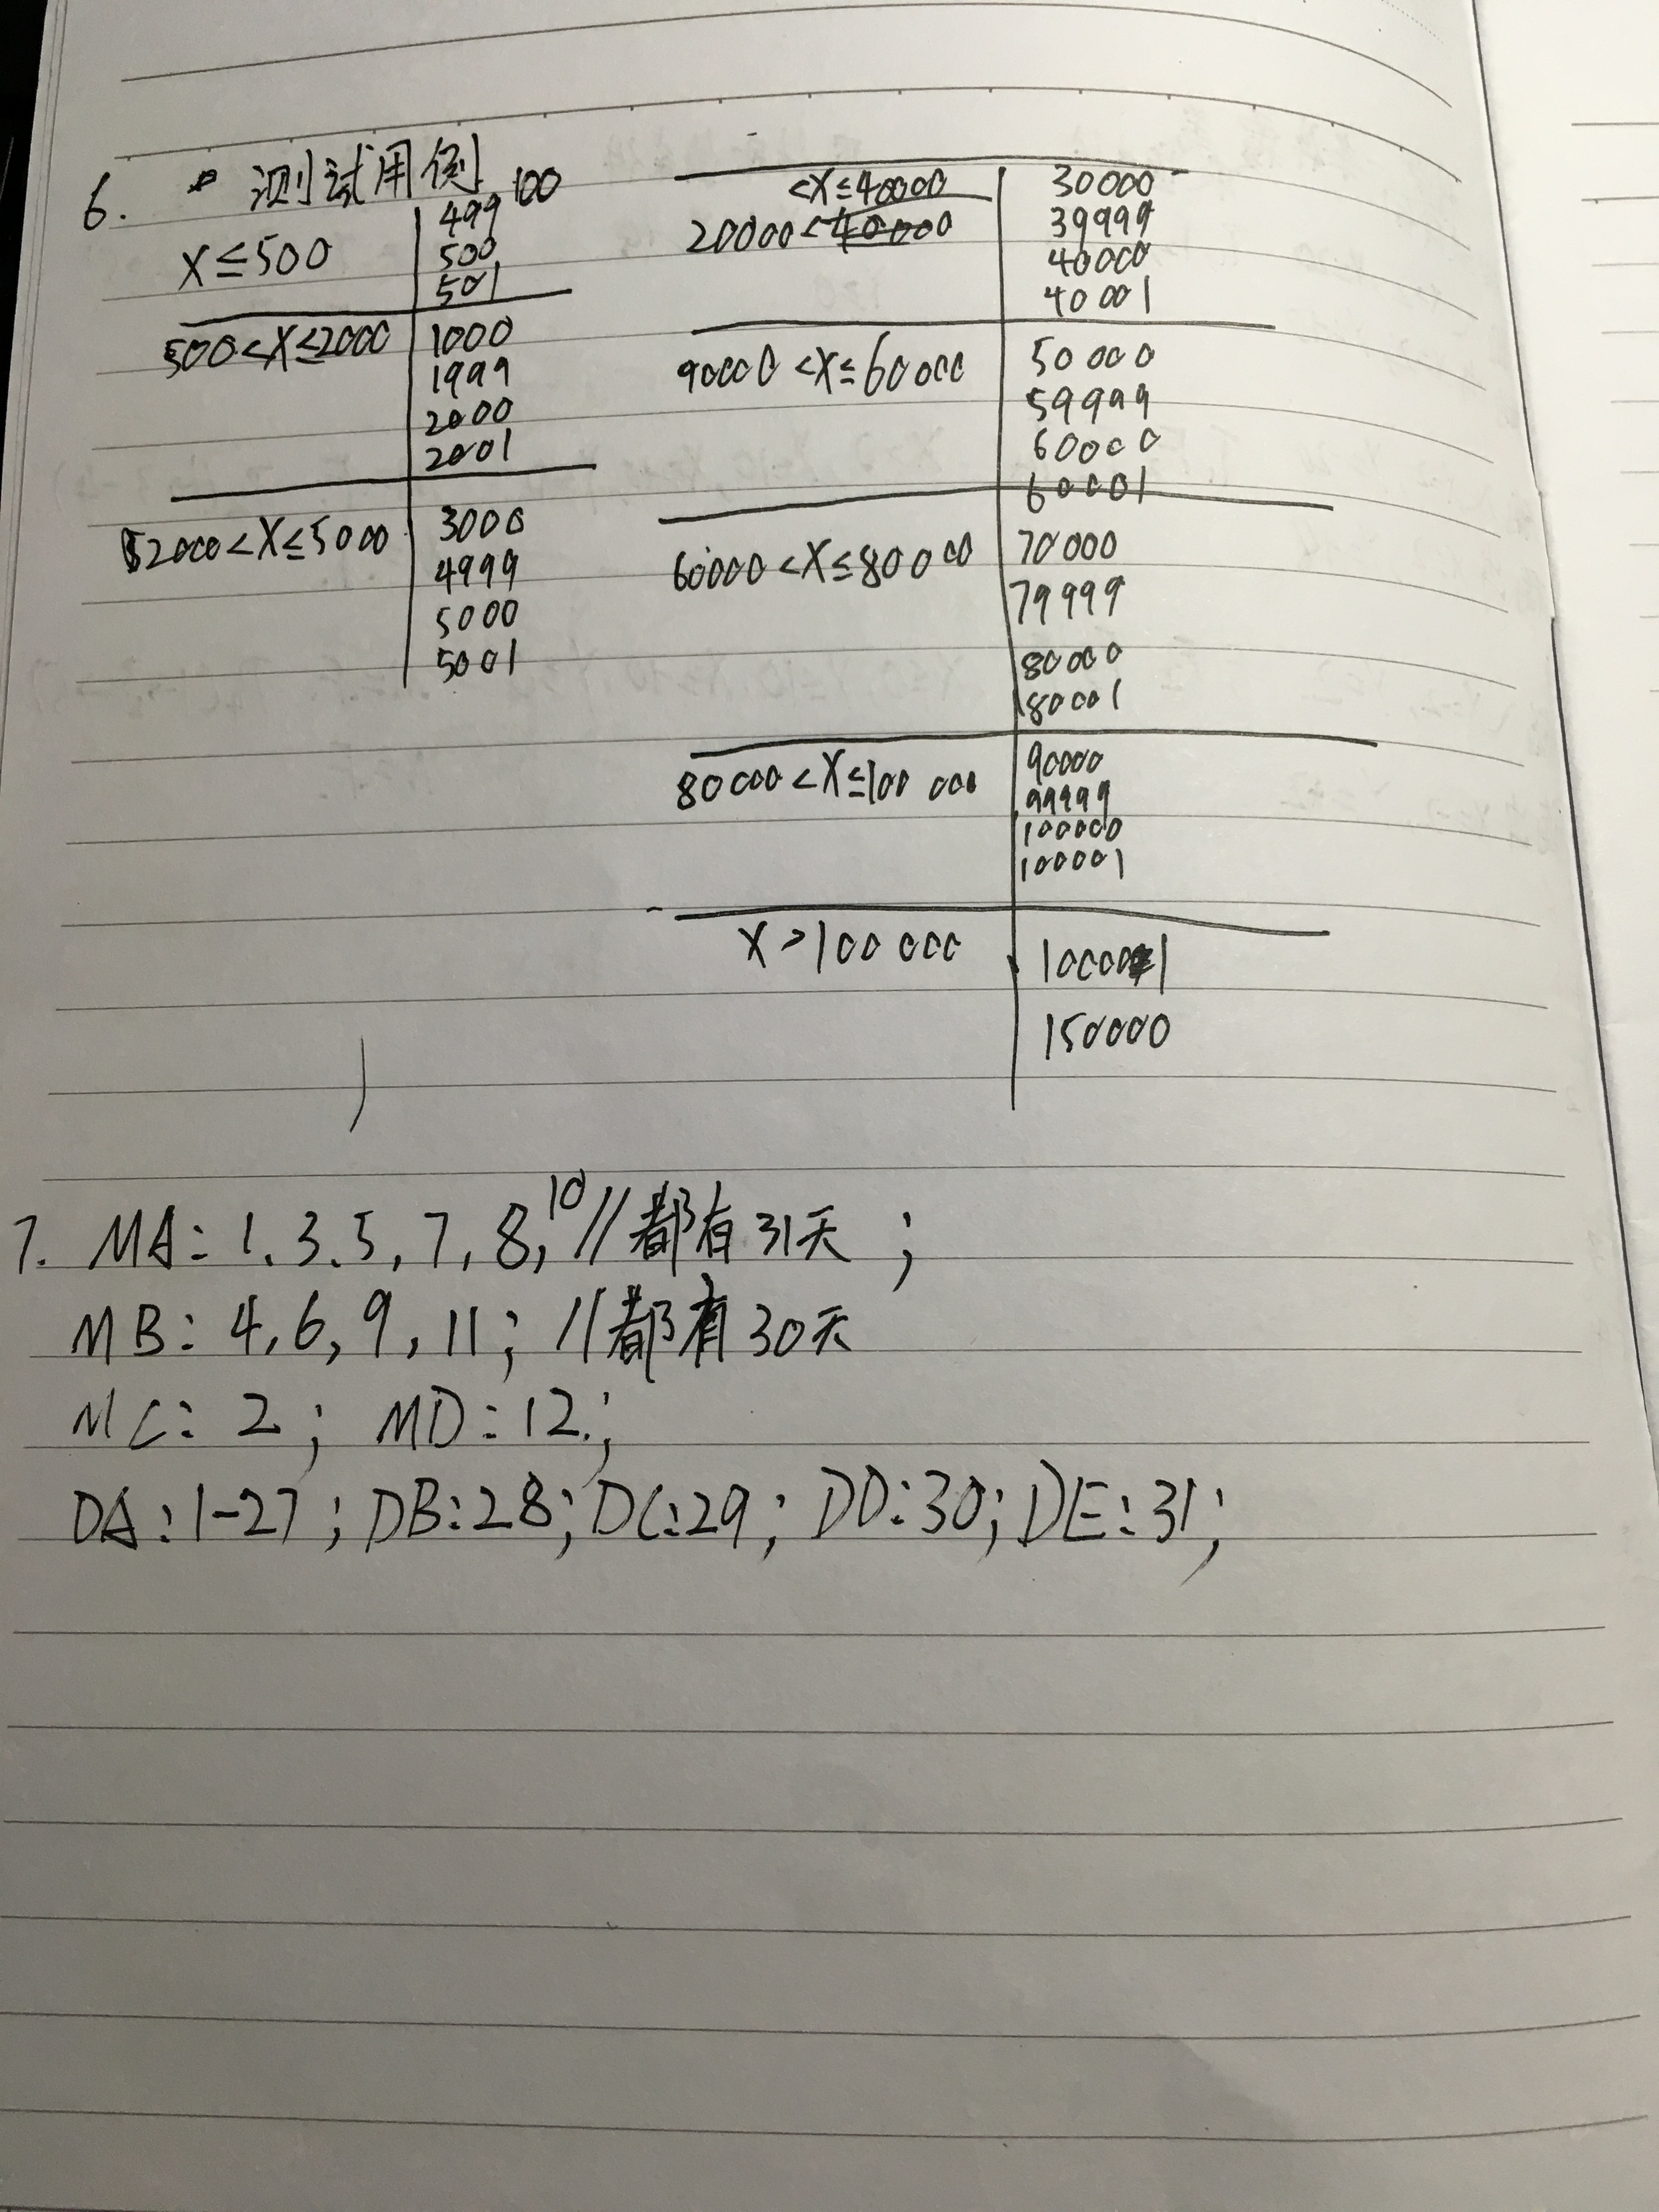 6. 测试用例
100
X≤500
499
500
501
500<X≤2000
1000
1999
2000
2001
2000<X≤5000
3000
4999
5000
5001
<X≤40000
20000<40000
30000
39999
40000
40001
90000<X≤60000
50000
59999
60000
60001
60000<X≤80000
70000
79999
80000
80001
80000<X≤100000
90000
99999
100000
100001
X>100000
100001
150000
7. MA: 1.3.5,7,8,10//都有31天;
MB: 4,6,9,11; //都有30天
MC: 2; MD:12.;
DA:1-27; DB:28; DC:29; DD:30; DE:31;